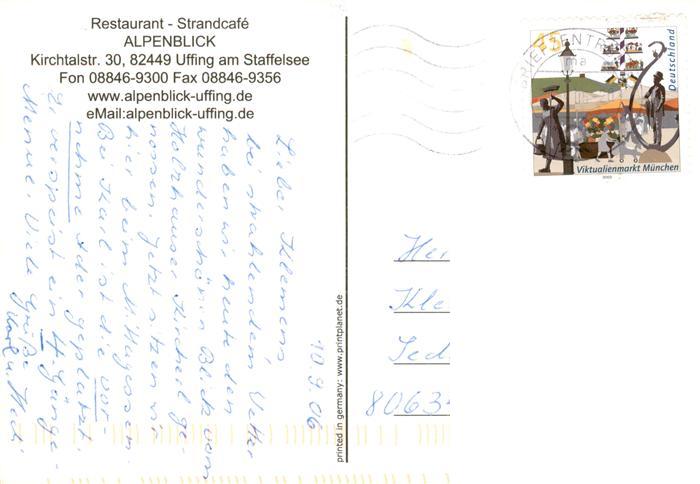 Restaurant - Strandcafé
ALPENBLICK
Kirchtalstr. 30, 82449 Uffing am Staffelsee
Fon 08846-9300 Fax 08846-9356
www.alpenblick-uffing.de
eMail:alpenblick-uffing.de
10.9.06
Lieber Klemens
bei strahlendem Wetter
haben wir heute den
wunderschönen Blick vom
Holzhauser Kircherl ge-
nossen. Jetzt sitzen wir
hier beim Mittagessen.
Bei Karl ist die Vor-
nehme Ader geplatzt.
Er verspeist ein 4-Gänge-
Menue. Viele Grüße
Karl u.
printed in germany: www.printplanet.de
BRIEFZENTR
ma
Deutschland
Viktualienmarkt München
2003
Her
Kle
8063